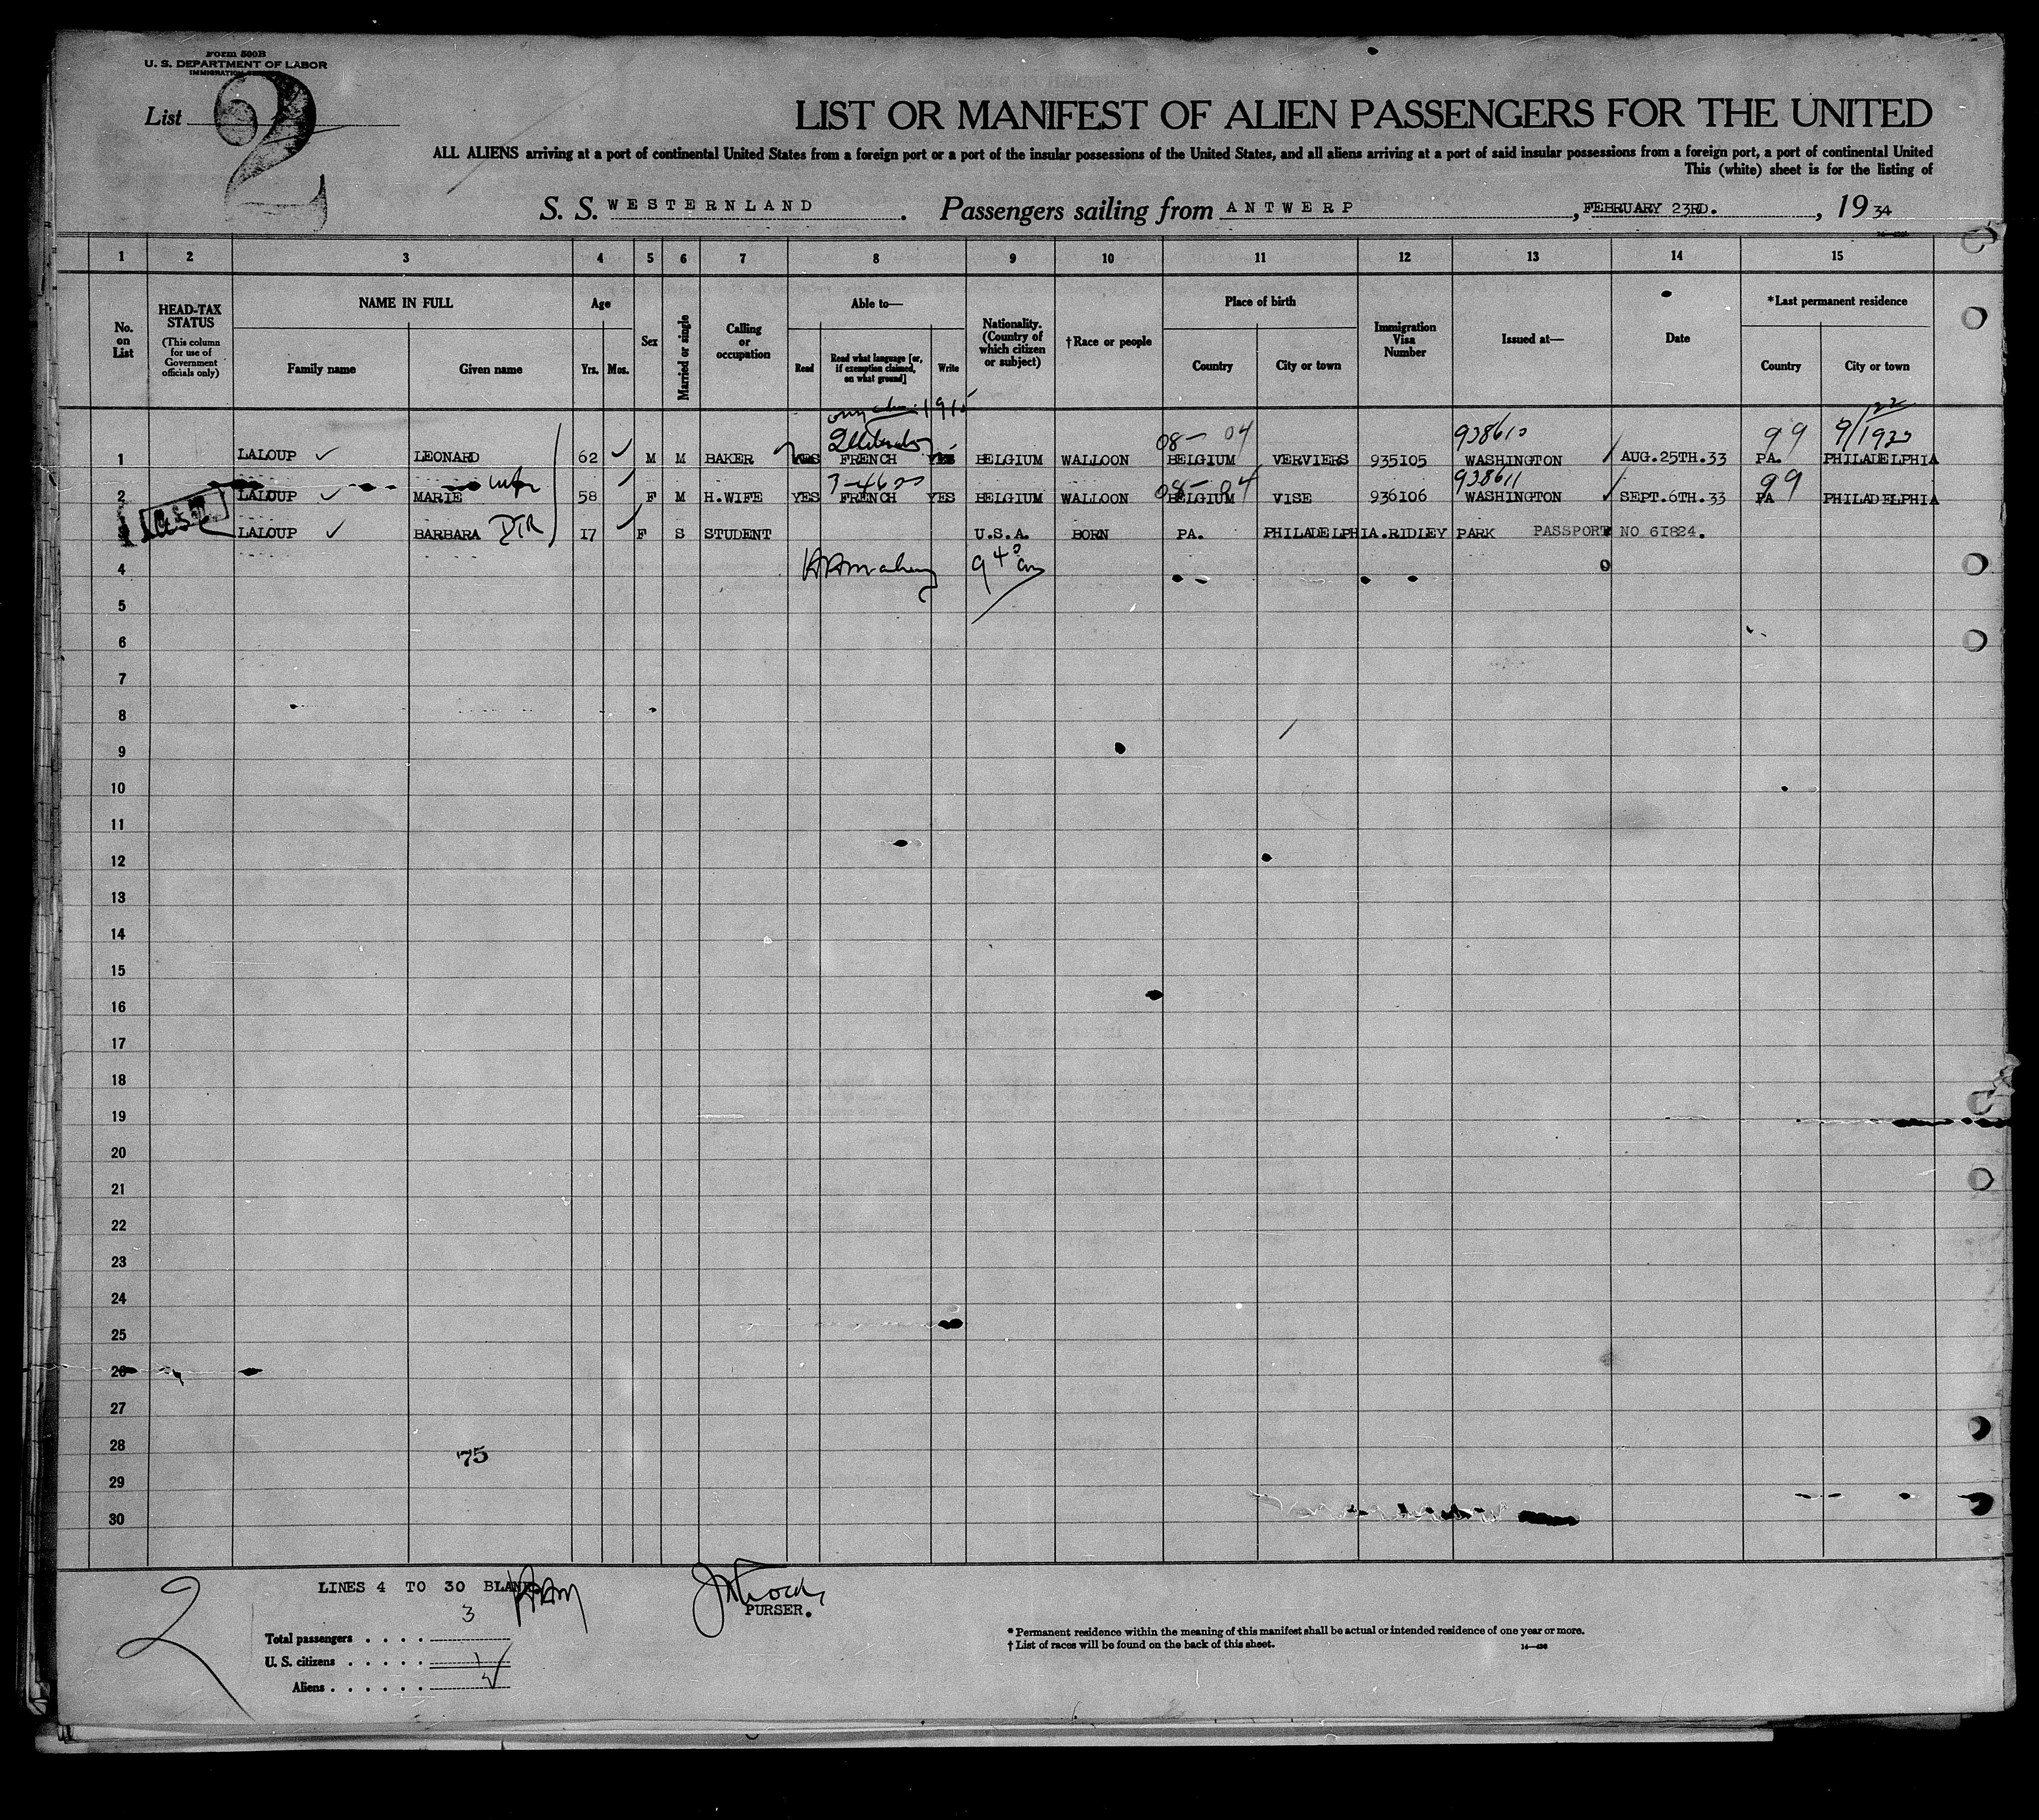 Form 500B
U. S. DEPARTMENT OF LABOR
IMMIGRATION
List 2
LIST OR MANIFEST OF ALIEN PASSENGERS FOR THE UNITED
ALL ALIENS arriving at a port of continental United States from a foreign port or a port of the insular possessions of the United States, and all aliens arriving at a port of said insular possessions from a foreign port, a port of continental United
This (white) sheet is for the listing of
S. S. WESTERNLAND. Passengers sailing from ANTWERP, FEBRUARY 23RD., 1934
1 2 3 4 5 6 7 8 9 10 11 12 13 14 15
No. on List
HEAD-TAX STATUS (This column for use of Government officials only)
NAME IN FULL
Family name Given name
Age
Yrs. Mos.
Sex
Married or single
Calling or occupation
Able to—
Read Read what language [or, if exemption claimed, on what ground] Write
Nationality. (Country of which citizen or subject)
†Race or people
Place of birth
Country City or town
Immigration Visa Number
Issued at—
Date
*Last permanent residence
Country City or town
08- 04 938610 99 9/1933
1 LALOUP LEONARD 62 M M BAKER YES FRENCH YES BELGIUM WALLOON BELGIUM VERVIERS 935105 WASHINGTON AUG.25TH.33 PA. PHILADELPHIA
08-04 938611 99
2 LALOUP MARIE 58 F M H.WIFE YES FRENCH YES BELGIUM WALLOON BELGIUM VISE 936106 WASHINGTON SEPT.6TH.33 PA PHILADELPHIA
LALOUP BARBARA DTR 17 F S STUDENT U.S.A. BORN PA. PHILADELPHIA.RIDLEY PARK PASSPORT NO 61824.
4
5
6
7
8
9
10
11
12
13
14
15
16
17
18
19
20
21
22
23
24
25
26
27
28
75
29
30
2
LINES 4 TO 30 BLANK.
PURSER.
Total passengers . . . . 3
U. S. citizens . . . . . 1
Aliens . . . . . . 2
* Permanent residence within the meaning of this manifest shall be actual or intended residence of one year or more.
† List of races will be found on the back of this sheet.